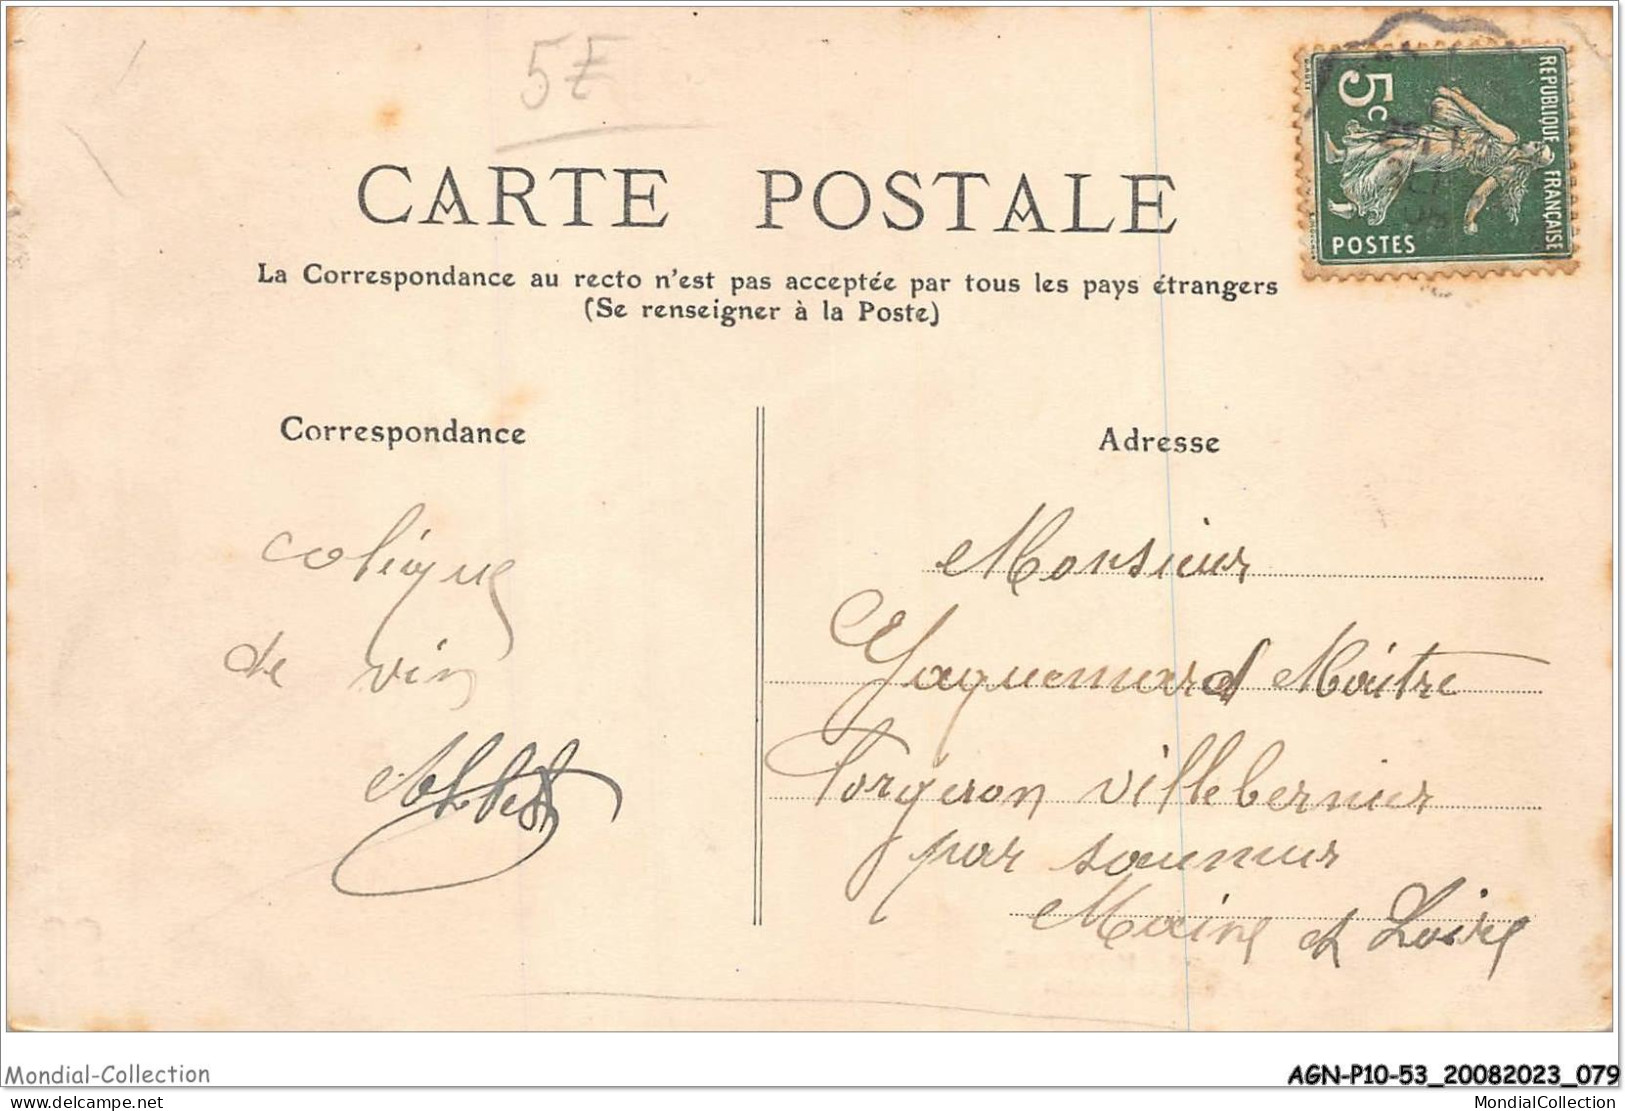 5E
CARTE POSTALE
La Correspondance au recto n'est pas acceptée par tous les pays étrangers
(Se renseigner à la Poste)
REPUBLIQUE FRANÇAISE
5c
POSTES
Correspondance
colique
de vin
Adresse
Monsieur
Jaquemard Maitre
Forgeron villebernier
par saumur
Maine et Loire
Mondial-Collection
AGN-P10-53_20082023_079
www.delcampe.net
MondialCollection